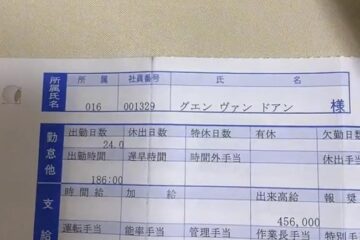 所属氏名
所属 社員番号 氏名
016 001329 グエン ヴァン ドアン 様
勤怠他
出勤日数 休出日数 特休日数 有休 欠勤日
24.0
出勤時間 遅早時間 時間外手当 休出手
186:00
支給
時間給 加給 出来高給 報奨
456,000
運転手当 能率手当 管理手当 作業長手当 特別手